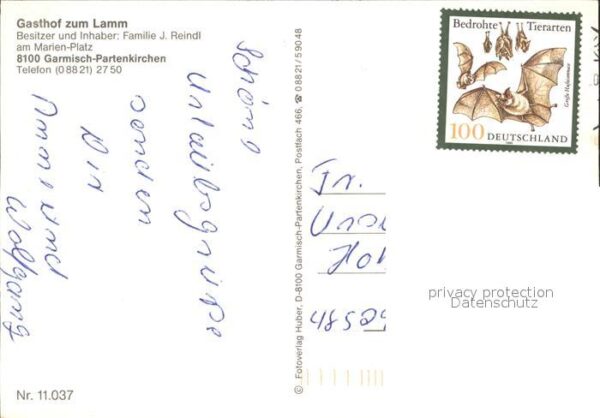 Gasthof zum Lamm
Besitzer und Inhaber: Familie J. Reindl
am Marien-Platz
8100 Garmisch-Partenkirchen
Telefon (0 88 21) 27 50
Schöne
Urlaubsgrüße
senden
Dir
und
Wolfgang
Nr. 11.037
© Fotoverlag Huber, D-8100 Garmisch-Partenkirchen, Postfach 466, ☎ 0 88 21 / 5 90 48
Bedrohte Tierarten
Große Hufeisennase
100 DEUTSCHLAND
Fr.
privacy protection
Datenschutz